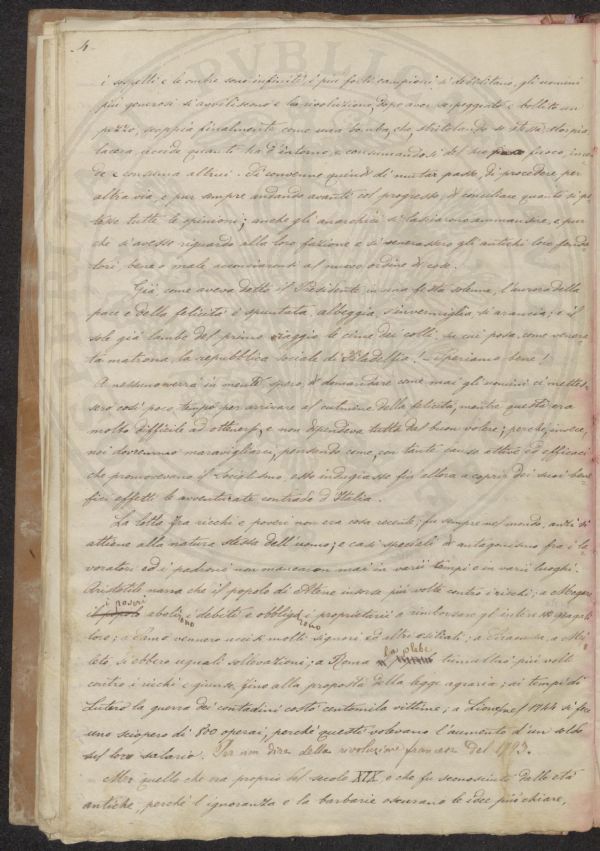 4
i sospetti e le ombre sono infiniti, i più forti campioni si debilitano, gli uomini
più generosi si avviliscono e la rivoluzione, dopo aver serpeggiato e bollito un
pezzo, scoppia finalmente come una bomba, che, stritolando se stessa, storpia
lacera, uccide quanti ha d'intorno, e consumandosi del suo fuoco, incen
de e consuma altrui. Si convenne quindi di mutar passo, di procedere per
altra via, e pur sempre andando avanti col progresso, di conciliare quanto si po
tesse tutte le opinioni; anche gli anarchici si lasciarono ammansire, e, pur
che si avesse riguardo alla loro fazione e si venerassero gli antichi loro fonda
tori, bene o male acconciaronsi al nuovo ordine di cose.
Già come aveva detto il Presidente in una festa solenne, l'aurora della
pace e della felicità è spuntata, albeggia, s'invermiglia, si arancia, e il
sole già lambe del primo raggio le cime dei colli, su cui posa, come venera
ta matrona, la repubblica sociale di Filadelfia! — Speriamo bene!
A nessuno verrà in mente, spero, di domandare come mai gli uomini ci mettes
sero così poco tempo per arrivare al culmine della felicità, mentre questa era
molto difficile ad ottenersi, e non dipendeva tutta dal buon volere; perchè, invece,
noi dovremmo maravigliarci, pensando come, con tante cause attive ed efficaci
che promovevano il Socialismo, esso indugiasse fin allora a coprir dei suoi bene
fici effetti le avventurate contrade d'Italia.
La lotta fra ricchi e poveri non era cosa recente; fu sempre nel mondo, anzi si
attiene alla natura stessa dell'uomo; e casi speciali di antagonismo fra i la
voratori ed i padroni non mancaron mai in varii tempi e in varii luoghi.
Aristotile narra che il popolo di Atene insorse più volte contro i ricchi; a Megara
i poveri
il popolo abolirono i debiti e obbligarono i proprietarii a rimborsare gli interessi pagati
loro; a Samo vennero uccisi molti signori ed altri esiliati; a Siracusa, a Mi
leto si ebbero uguali sollevazioni; a Roma la plebe tumultuò più volte
contro i ricchi e giunse fino alla proposta della legge agraria; ai tempi di
Lutero la guerra dei contadini costò centomila vittime; a Lione nel 1744 si fece
uno sciopero di 800 operai, perchè questi volevano l'aumento d'un soldo
sul loro salario. Per non dire della rivoluzione francese del 1793.
Ma quello che era proprio del secolo XIX, e che fu sconosciuto dalle età
antiche, perchè l'ignoranza e la barbarie oscurano le idee più chiare,